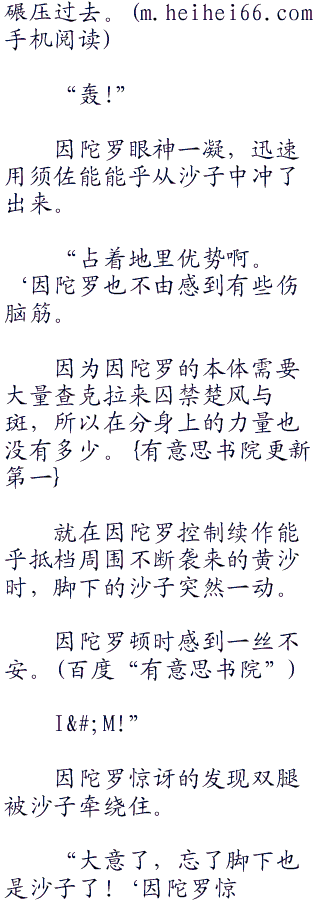 碾压过去。(m.heihei66.com
手机阅读)
“轰!”
因陀罗眼神一凝，迅速
用须佐能能乎从沙子中冲了
出来。
“占着地里优势啊。
‘因陀罗也不由感到有些伤
脑筋。
因为因陀罗的本体需要
大量查克拉来囚禁楚风与
斑，所以在分身上的力量也
没有多少。{有意思书院更新
第一}
就在因陀罗控制续作能
乎抵档周围不断袭来的黄沙
时，脚下的沙子突然一动。
因陀罗顿时感到一丝不
安。(百度“有意思书院”)
I&#;M!”
因陀罗惊讶的发现双腿
被沙子牵绕住。
“大意了，忘了脚下也
是沙子了！‘因陀罗惊